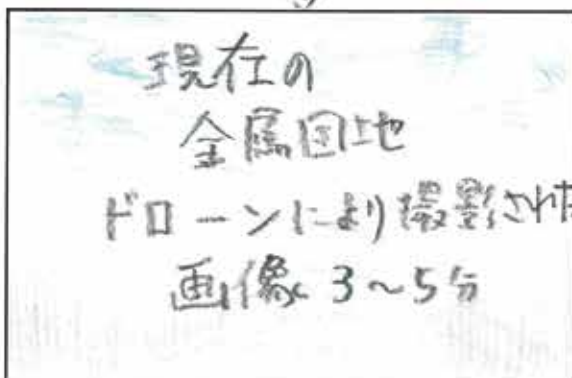 現在の
金属団地
ドローンにより撮影された
画像 3～5分